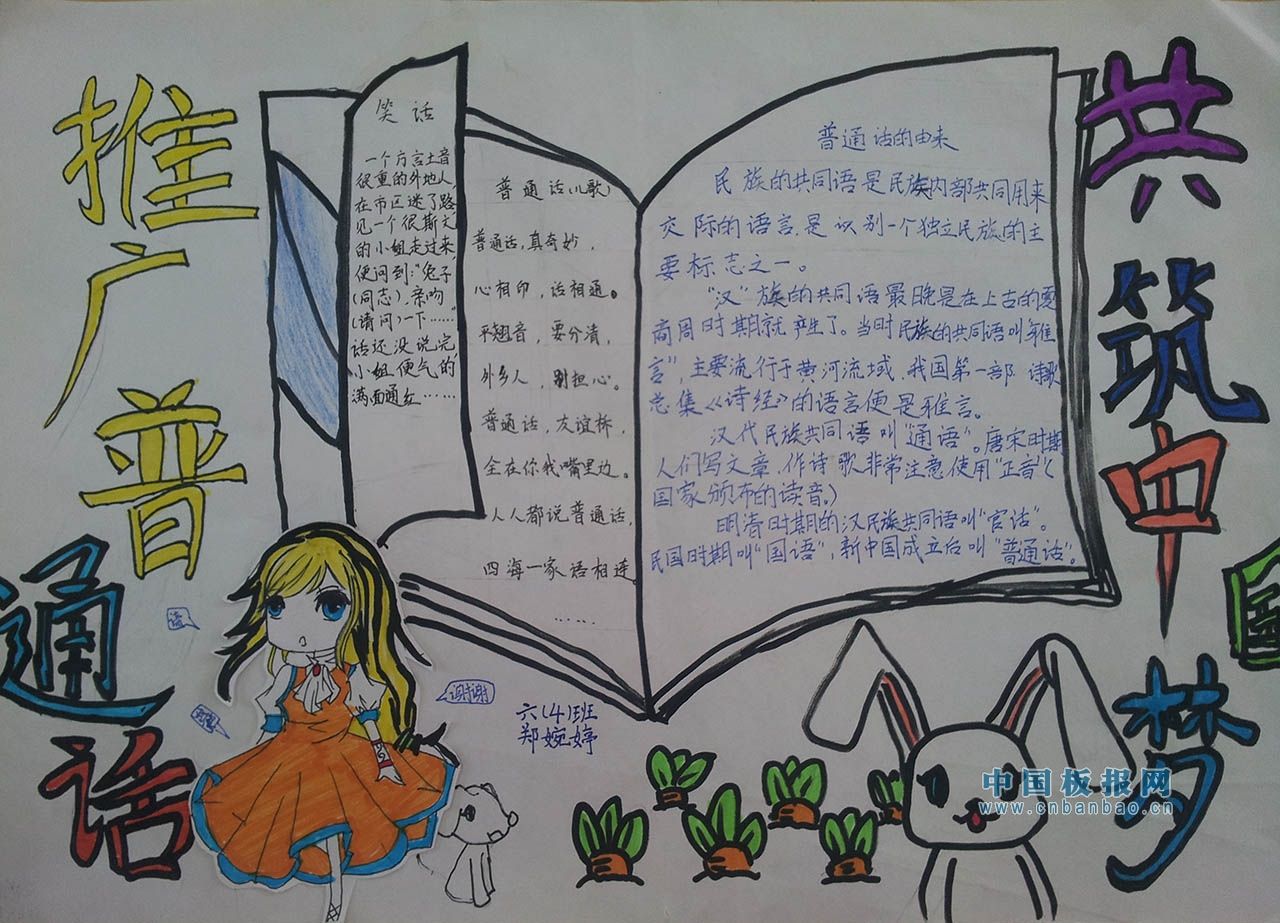 推广普通话
共筑中国梦
笑话
一个方言土音
很重的外地人,
在市区迷了路
见一个很斯文
的小姐走过来,
便问到:"兔子
(同志),亲吻
(请问)一下……"
话还没说完
小姐便气的
满面通红……
普通话(儿歌)
普通话,真奇妙,
心相印,话相通。
平翘音,要分清,
外乡人,别担心。
普通话,友谊桥,
全在你我嘴里边。
人人都说普通话,
四海一家话相连
……
普通话的由来
民族的共同语是民族内部共同用来
交际的语言.是识别一个独立民族的主
要标志之一。
"汉"族的共同语最晚是在上古的夏
商周时期就产生了。当时民族的共同语叫"雅
言",主要流行于黄河流域.我国第一部诗歌
总集《诗经》的语言便是雅言。
汉代民族共同语叫"通语"。唐宋时期
人们写文章、作诗歌非常注意使用"正音"(
国家颁布的读音。)
明清时期的汉民族共同语叫"官话"。
民国时期叫"国语",新中国成立后叫"普通话"。
请
谢谢
六(4)班
郑婉婷
中国板报网
www.cnbanbao.cn